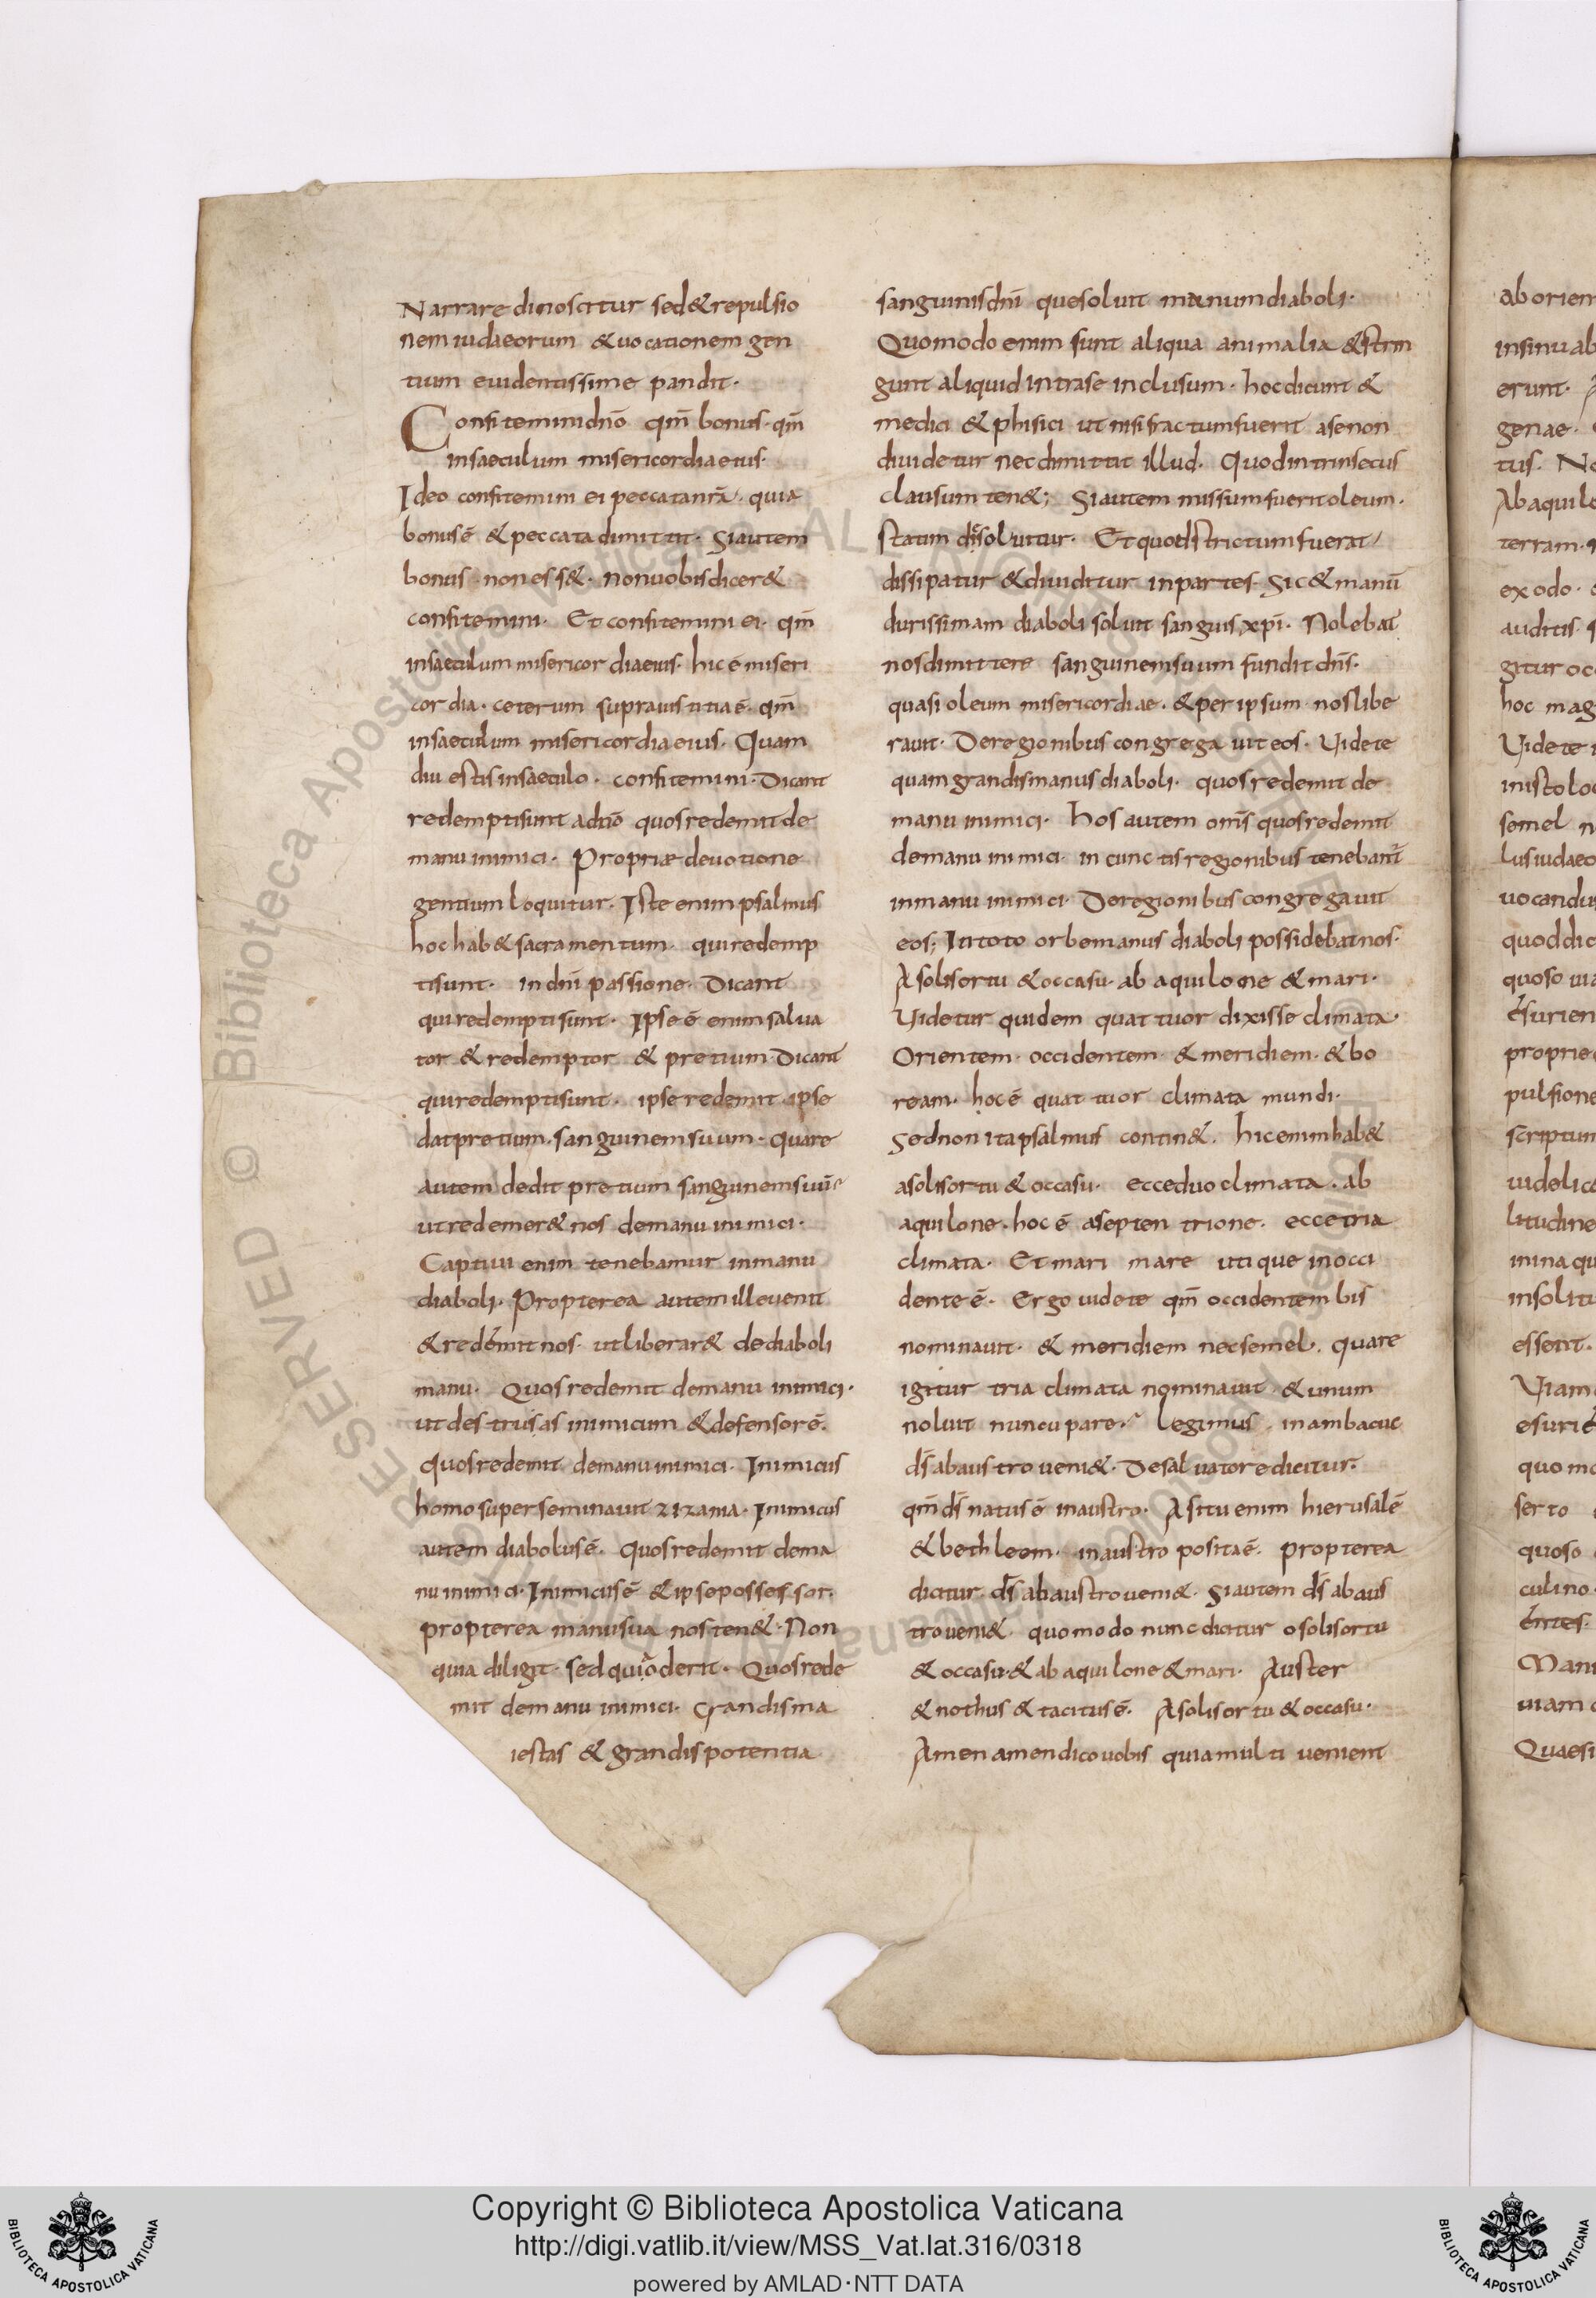 Narrare dinoscitur sed & repulsio
nem iudaeorum & uocationem gen
tium euidentissime pandit·
Confitemini dnō qm̄ bonus· qm̄
insaeculum misericordia eius·
Ideo confitemini ei peccata nrā· quia
bonus ē & peccata dimittit· Si autem
bonus non ess&· non uobis dicer&
confitemini· Et confitemini ei· qm̄
insaeculum misericordia eius· hic ē miseri
cordia· ceterum supra iustitia ē· qm̄
insaeculum misericordia eius· Quam
diu estis insaeculo· confitemini· Dicant
redempti sunt a dnō quos redemit de
manu inimici· Propriae deuotione
gentium loquitur· Iste enim psalmus
hoc hab& sacramentum· qui redemp
ti sunt· in dnī passione· Dicant
qui redempti sunt· Ipse ē enim salua
tor & redemptor & pretium· Dicant
qui redempti sunt· ipse redemit· ipse
dat pretium· sanguinem suum· quare
autem dedit pretium sanguinem suū
ut redemer& nos demanu inimici·
Captiui enim tenebamur inmanu
diaboli· Propterea autem ille uenit
& redemit nos· ut liberar& de diaboli
manu· Quos redemit demanu inimici·
ut destruas inimicum & defensorē·
quos redemit demanu inimici· Inimicus
homo superseminauit zizania· Inimicus
autem diabolus ē· quos redemit dema
nu inimici· Inimicus ē & ipse possessor·
propterea manu sua nos ten&· Non
quia diligit· sed quia oderit· Quos rede
mit demanu inimici· Grandis ma
iestas & grandis potentia
sanguinis dnī que soluit manum diaboli·
Quomodo enim sunt aliqua animalia & strin
gunt aliquid intra se inclusum· hoc dicunt &
medici & phisici ut nisi fractum fuerit a se non
diuidetur nec dimittit illud· Quod intrinsecus
clausum ten&; Si autem missum fuerit oleum·
statim dissoluitur· Et quod strictum fuerat
dissipatur & diuiditur in partes· Sic & manū
durissimam diaboli soluit sanguis xpī· Nolebat
nos dimittere sanguinem suum fundit dns̄·
quasi oleum misericordiae· & per ipsum nos libe
rauit· De regionibus congregauit eos· Uidete
quam grandis manus diaboli· quos redemit de
manu inimici· hos autem omīs quos redemit
demanu inimici in cunctis regionibus tenebant̄
inmanu inimici· De regionibus congregauit
eos; In toto orbe manus diaboli possidebat nos·
A solis ortu & occasu· ab aquilone & mari·
Uidetur quidem quattuor dixisse climata·
Orientem· occidentem & meridiem· & bo
ream· hoc ē quattuor climata mundi·
sed non ita psalmus contin&· hic enim hab&
a solis ortu & occasu· ecce duo climata· ab
aquilone· hoc ē a septentrione· ecce tria
climata· Et mari mare utique in occi
dente ē· Ergo uidete qm̄ occidentem bis
nominauit· & meridiem nec semel· quare
igitur tria climata nominauit & unum
noluit nuncupare· Legimus in ambacuc
ds̄ ab austro ueni&· De saluatore dicitur·
qm̄ ds̄ natus ē in austro· A situ enim hierusalē
& bethleem· in austro posita ē· propterea
dicitur ds̄ ab austro ueni&· Si autem ds̄ ab aus
tro ueni& quomodo nunc dicitur o solis ortu
& occasu· & ab aquilone & mari· Auster
& nothus & tacitus ē· A solis ortu & occasu·
Amen amen dico uobis quia multi uenient
ab orien
insinuab
erunt·
genae·
tus· No
Ab aquilo
terram·
exodo·
auditis·
gitur oc
hoc mag
Uidete
in isto loc
semel n
lus iudaeo
uocandus
quod dic
quoso uia
esurien
proprie
pulsione
scriptum
uidelic
litudine
inina qu
insolitu
essent·
Uiam
esurie
quomo
serto
quoso
culino·
entes·
Mani
uiam c
Quaesi
RESERVED © Biblioteca Apostolica Vaticana ALL RIGHTS RESERVED © Biblioteca Apostolica Vaticana ALL RIGHTS
Copyright © Biblioteca Apostolica Vaticana
http://digi.vatlib.it/view/MSS_Vat.lat.316/0318
powered by AMLAD·NTT DATA
BIBLIOTECA APOSTOLICA VATICANA
BIBLIOTECA APOSTOLICA VATICANA